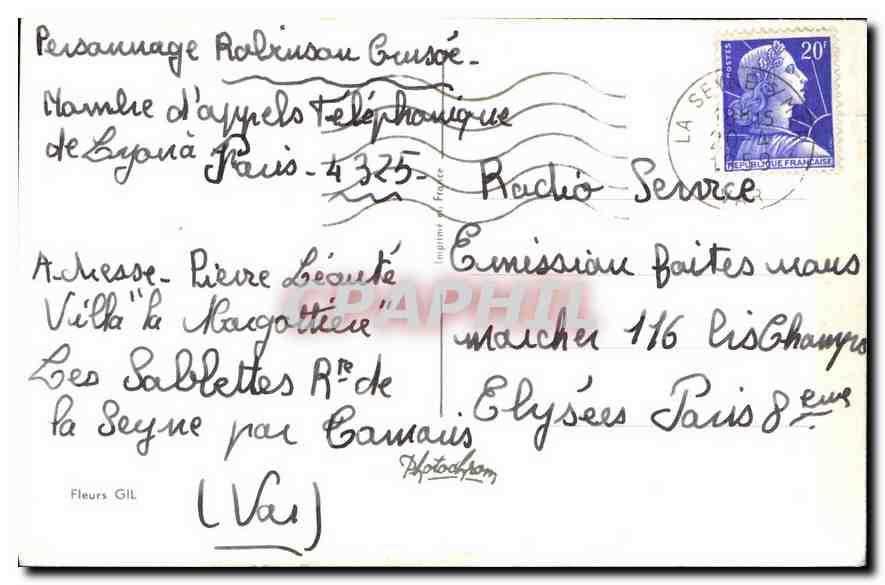 Personnage Robinson Crusoé -
Nombre d'appels Téléphonique
de Lyon à Paris - 4325 -
Adresse - Pierre Léauté
Villa "la Margottière"
Les Sablettes Rte de
la Seyne par Tamaris
(Var)
Fleurs GIL
Photochrom
Imprimé en France
POSTES
20F
REPUBLIQUE FRANCAISE
LA SEYNE
VAR
Radio Service
Emission faites nous
marcher 116 bis Champs
Elysées Paris 8eme
CPAPHIL